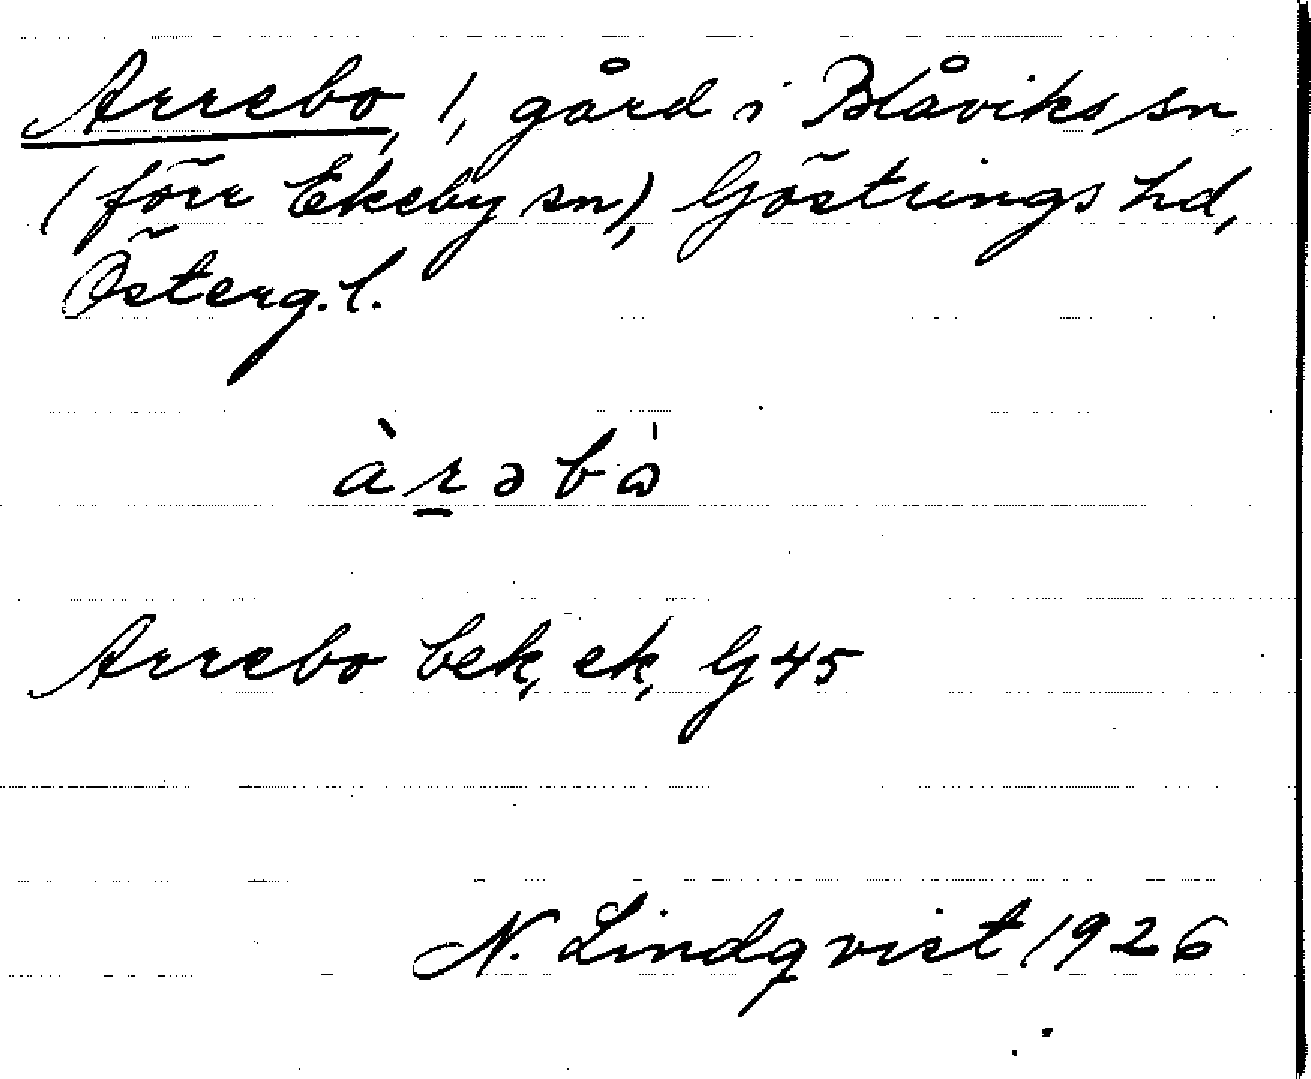 Arrebo, 1, gård i Blåviks sn
(förr Ekeby sn), Göstrings hd,
Österg. l.
àr̲əbɷ̀
Arrebo bek, ek, G45
N. Lindqvist 1926